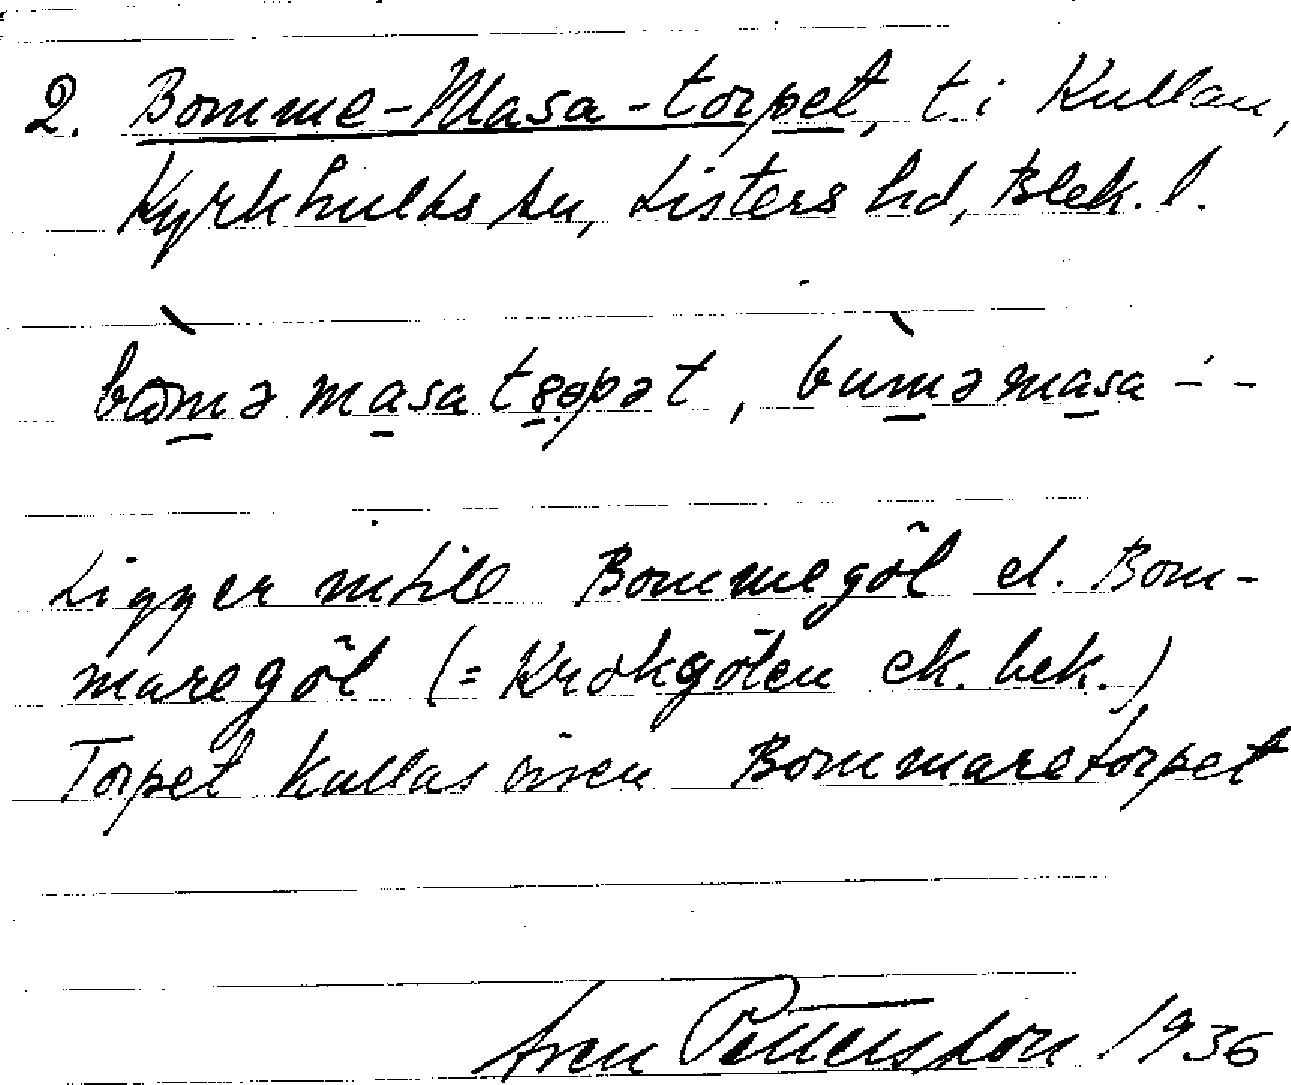 2. Bomme-Masa-torpet, t. i Kullan,
Kyrkhults sn, Listers hd, Blek. l.
masa
Ligger intill Bommegöl el. Bom-
maregöl (= Krokgölen ek. bek.)
Torpet kallas även Bommaretorpet
Sven Pettersson 1936